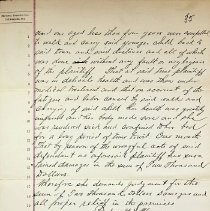 95
and one aged less than four years were compelled
to walk and carry said younger child back to
said town and said stations and all of which
was done without any fault or negligence
of the plaintiff. That at said time plaintiff
was in delicate health and was then under
medical treatment and that on account of the
fatigue and labor caused by said walk and
carrying of said child her health was greatly
and her body made sore and she
was made sick and confined to her bed
for a long period of time to wit one month
That by reason of the wrongful acts of said
defendant as aforesaid plaintiff has sus-
tained damages in the sum of Two Thousand
Dollars.
Wherefore she demands judgment for the
sum of Two Thousand Dollars damages and
all proper relief in the premises